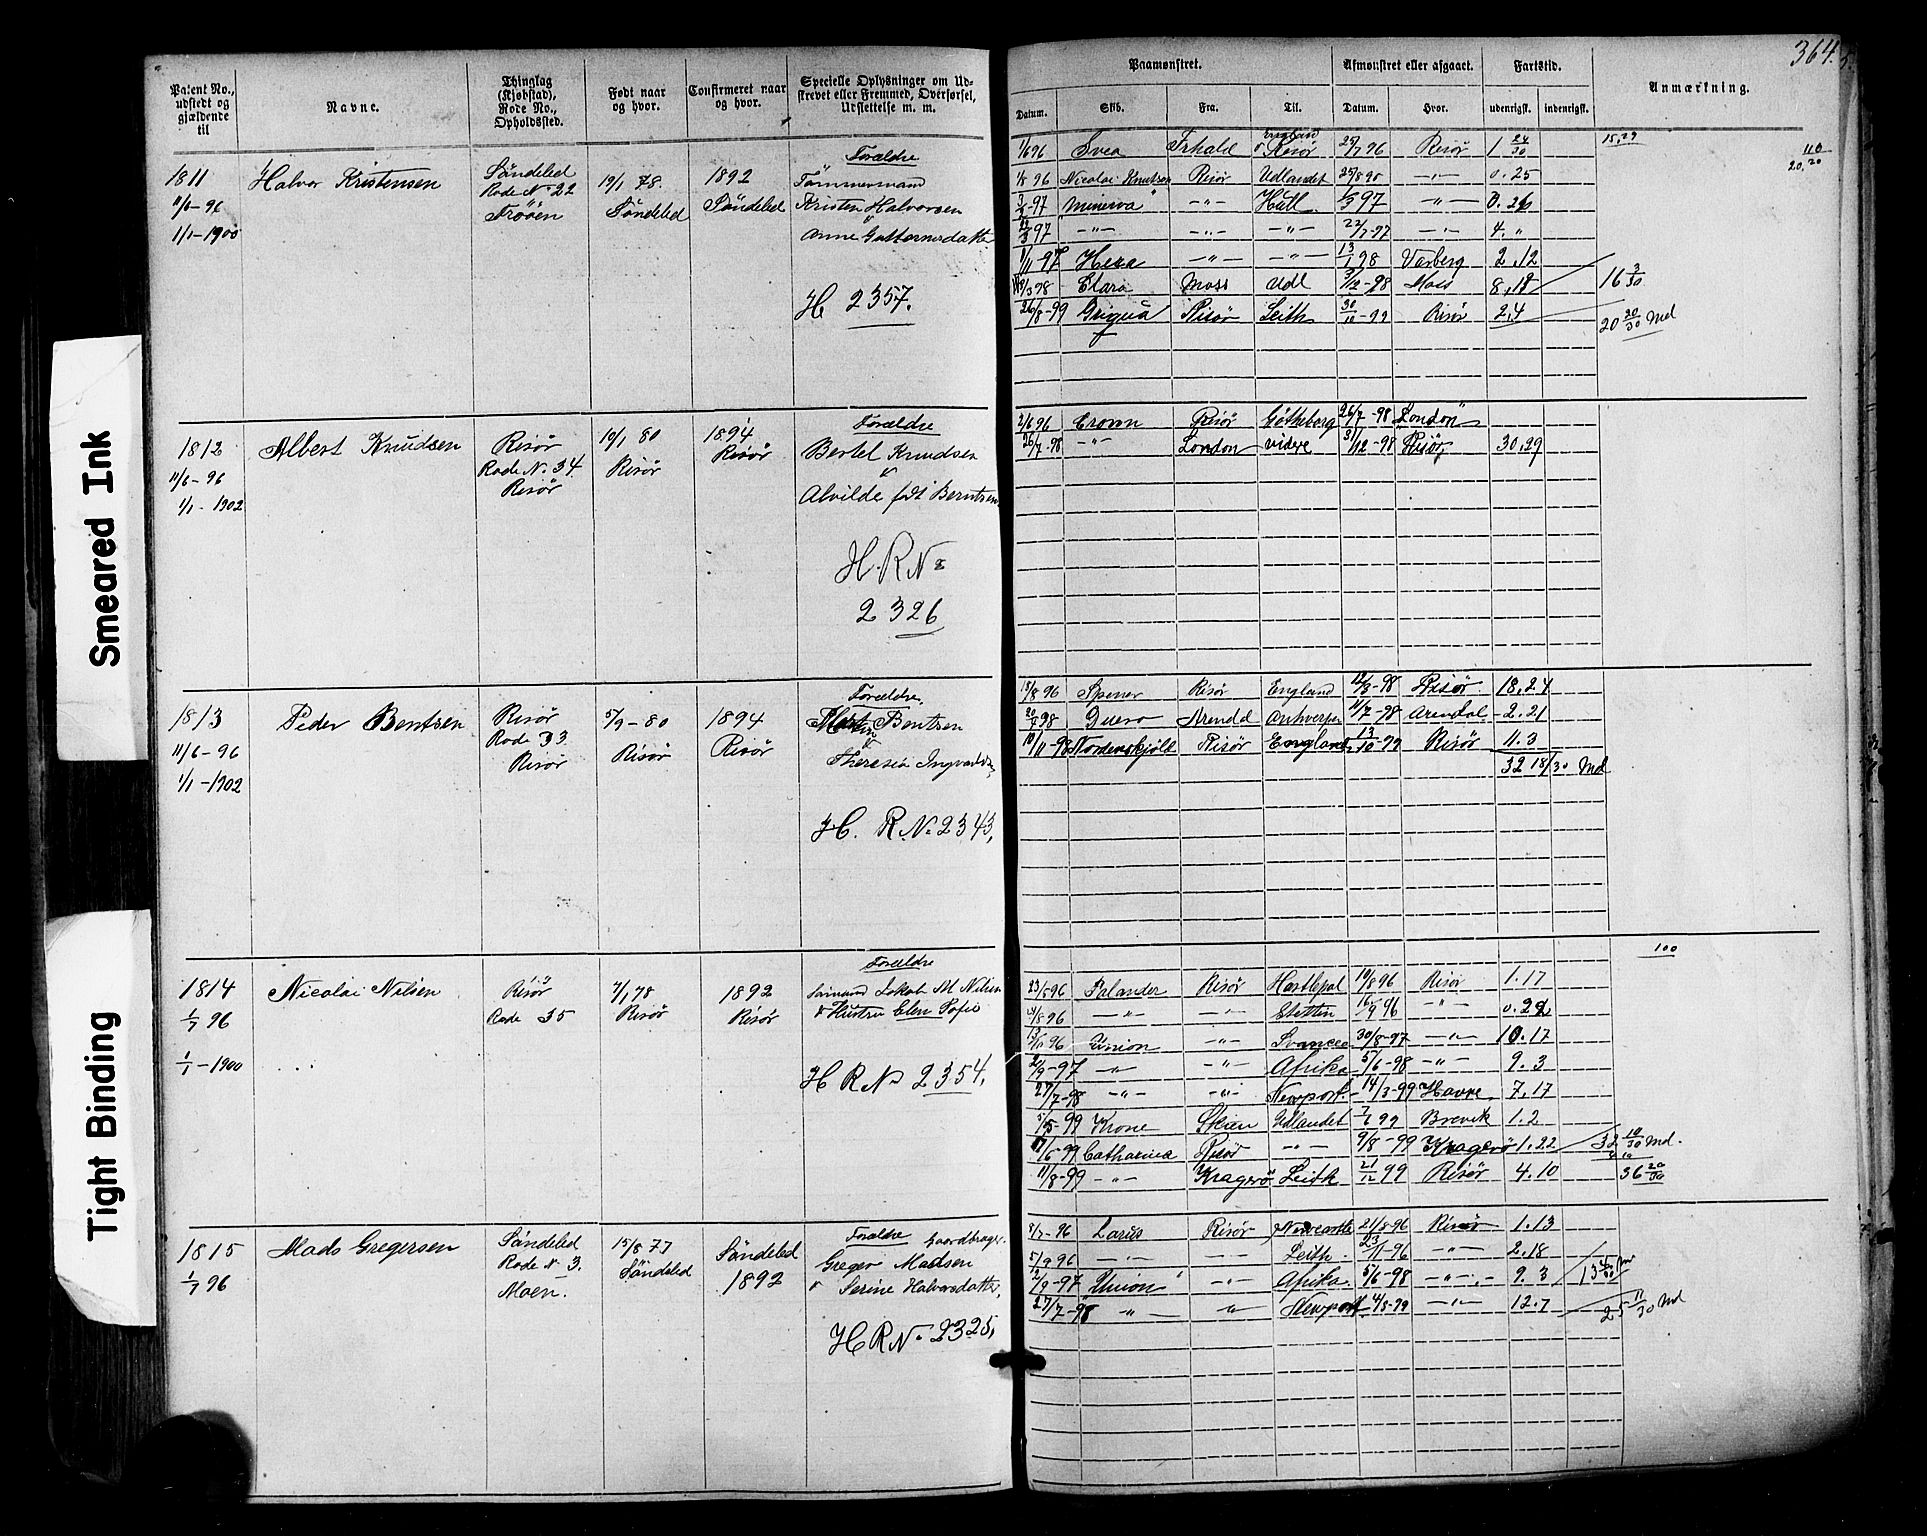 364.
Smeared Ink
Tight Binding
Patent No., udstedt og gjældende til
Navne.
Thinglag (Kjøbstad), Rode No., Opholdssted.
Født naar og hvor.
Confirmeret naar og hvor.
Specielle Oplysninger om Udstrevet eller Fremmed, Overførsel, Udslettelse m. m.
Paamønstret.
Afmønstret eller afgaaet.
Fartstid.
Anmærkning.
Datum. Skib. Fra. Til. Datum. Hvor. udenrigsk. indenrigsk.
1811
11/6-96
1/1-1900
Halvor Kristensen
Søndeled
Rode No 22
19/1 78.
Søndeled
1892
Søndeled
Forældre
Tømmermand
Kristen Halvorsen
H 2357.
1/6 96 Svea England Risør 25/7 96 Risør 1 24/30 15.29
1/8 96 Nicolai Knutsen Risør Udlandet 25/8 96 -"- 0.25
-97 "Minerva" -"- Hull 97 -"- 0.26
97 -"- -"- -"- 22/7-97 -"- 4."
11-97 Hera -"- -"- 13/1 98 Varberg 2.12
98 Clara Moss Udl -98 Moss 8,18 16 3/30
26/8-99 Grigua Risør Leith 30/10-99 Risør 2.4 20 20/30 Md
1812
11/6-96
1/1-1902
Albert Knudsen
Risør
Rode No. 34
Risør
19/1 80
Risør
1894
Risør
Forældre
Bertel Knudsen
&
Alvilde født Berntsen
H. R No
2326
2/6 96 Crown Risør Gøtheborg 26/7-98 London
26/7-98 -"- London videre 31/12-98 Risør, 30.29
1813
11/6-96
1/1-1902
Peder Bentsen
Risør
Rode 33
Risør
5/9-80
Risør
1894
Risør
Forældre
Martin Bentsen
&
Theresia
H. R No 2343,
18/8 96 Spener Risør England -98 Risør 18.24
98 Duero Arendal Antverpen 11/7-98 Arendal 2.21
10/11-98 Nordenskjöld Risør England 13/10-99 Risør 11.3
32 18/30 Md
1814
1/7 96
1/1-1900
Nicolai Nilsen
Risør
Rode 35
7/1 78
Risør
1892
Risør
Forældre
Sømand Jakob M Nilsen
& Hustru Elen Sofie
H R No 2354,
100
96 Palander Risør Hartlepol 19/8 96 Risør 1.17
/8 96 -"- -"- Stettin 16/9 96 -"- 0.22
96 Union -"- 30/8-97 -"- 10.17
2/9-97 -"- -"- Afrika 5/6-98 -"- 9.3
27/7-98 -"- -"- Newport 14/3-99 Havre 7.17
-99 Krone Skien Udlandet 7/6 99 Brevik 1.2
17/6-99 Catharina Risør -"- 9/8-99 Kragerø 1.22 32 10/30 Md.
11/8-99 -"- Kragerø Leith 21/12 99 Risør 4.10 36 20/30
1815
1/7 96
Mads Gregersen
Søndeled
Rode No 3.
Moen.
15/8 77
Søndeled
Søndeled
1892
Forældre Gaardbruger
Greger Madsen
& Serine Halvorsdatter,
H R No 2325,
8/7-96 Larus Risør Newcastle 21/8-96 Risør 1.13
5/9 96 -"- Leith 23/11-96 -"- 2.18
2/9-97 "Union" -"- Afrika 5/6-98 -"- 9.3 13 4/30 M
27/7-98 " " Newport 4/8-99 -"- 12.7 25 11/30 Md